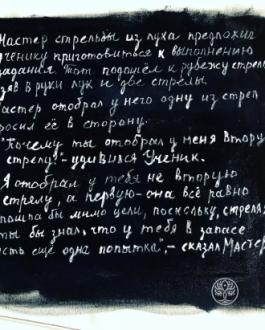 Мастер стрельбы из лука предложил
ученику приготовиться к выполнению
задания. Тот подошёл к рубежу стрель
взяв в руки лук и две стрелы.
Мастер отобрал у него одну из стрел
бросил её в сторону.
"Почему ты отобрал у меня втору
стрелу?"- удивился Ученик.
"Я отобрал у тебя не вторую
стрелу, а первую- она всё равно
пошла бы мимо цели, поскольку, стреляя
ты бы знал, что у тебя в запасе
есть ещё одна попытка",- сказал Мастер